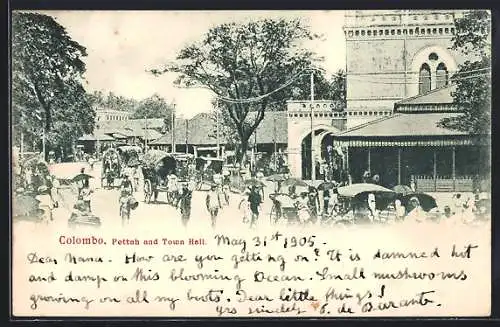 Colombo. Pettah and Town Hall. May 31st 1905.
Dear Nana. How are you getting on? It is damned hot
and damp on this blooming Ocean. Small mushrooms
growing on all my boots. Dear little things!
Yrs sincerely de Barante